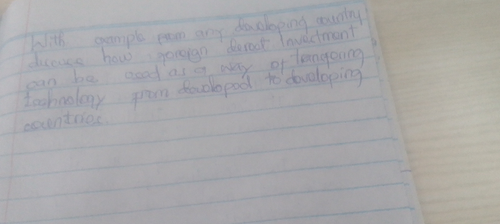 With example from any developing country
discuss how foreign direct Investment
can be used as a way of
technology from developed to developing
countries.